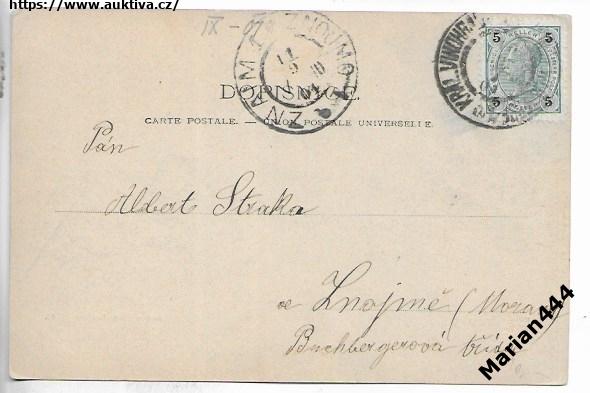 https://www.auktiva.cz/
IX
ZNAIM ZNOJMO
KRÁL. VINOHRADY
5 5
HELLER
5 5
DOPISNICE.
CARTE POSTALE. — UNION POSTALE UNIVERSELLE.
Pán
Albert Straka
ve Znojmě (Mora
Buchbergerová tříd
Marian444